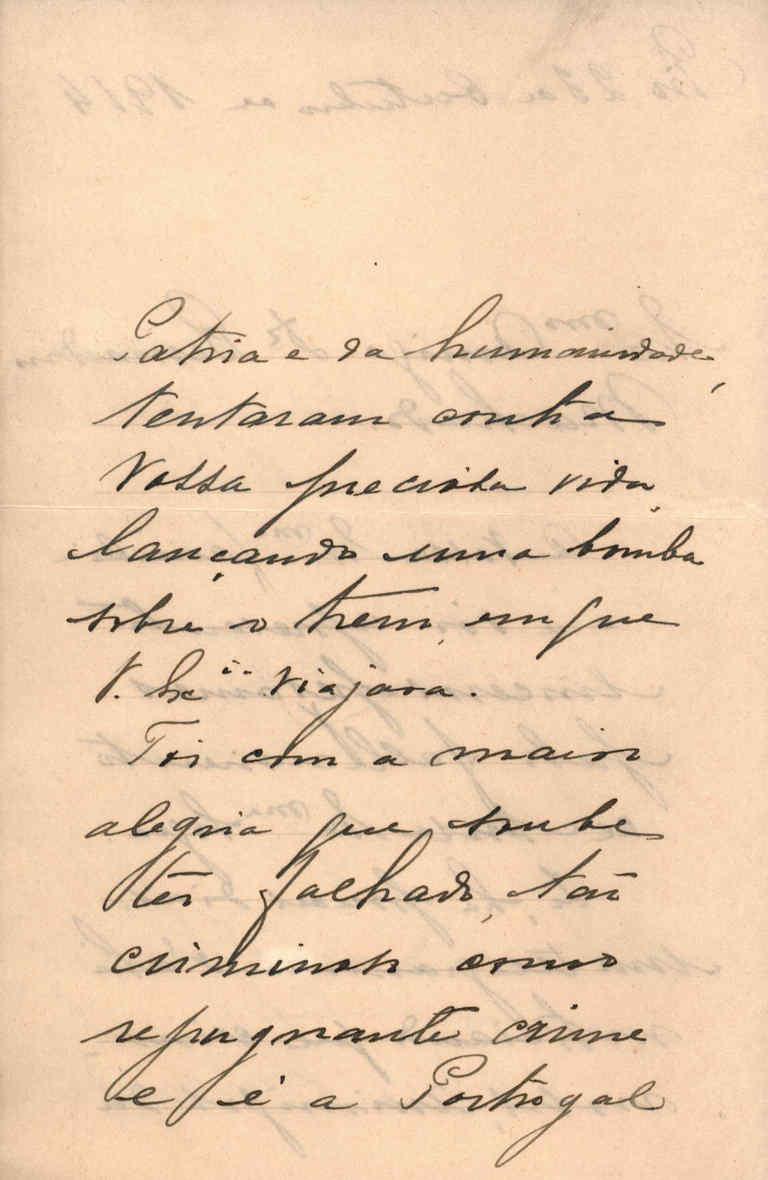 Patria e da humanidade,
tentaram contra
Vossa preciosa vida,
lançando uma bomba
sobre o trem, em que
V. Ex.ª viajava.
Foi com a maior
alegria que soube
ter falhado, tão
criminoso como
repugnante crime
e é a Portugal